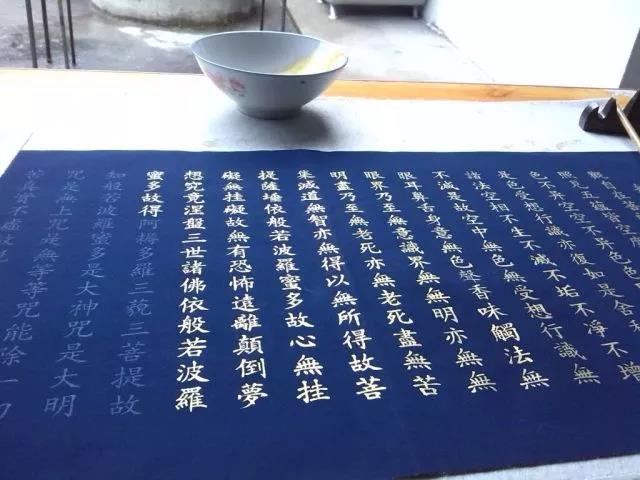 是色受想行識亦復如是舍
諸法空相不生不滅不垢不淨不增
不減是故空中無色無受想行識無
眼耳鼻舌身意無色聲香味觸法無
眼界乃至無意識界無無明亦無無
明盡乃至無老死亦無老死盡無苦
集滅道無智亦無得以無所得故菩
提薩埵依般若波羅蜜多故心無挂
礙無挂礙故無有恐怖遠離顛倒夢
想究竟涅槃三世諸佛依般若波羅
蜜多故得阿耨多羅三藐三菩提故
知般若波羅蜜多是大神咒是大明
咒是無上咒是無等等咒能除一切
苦真實不虛故說